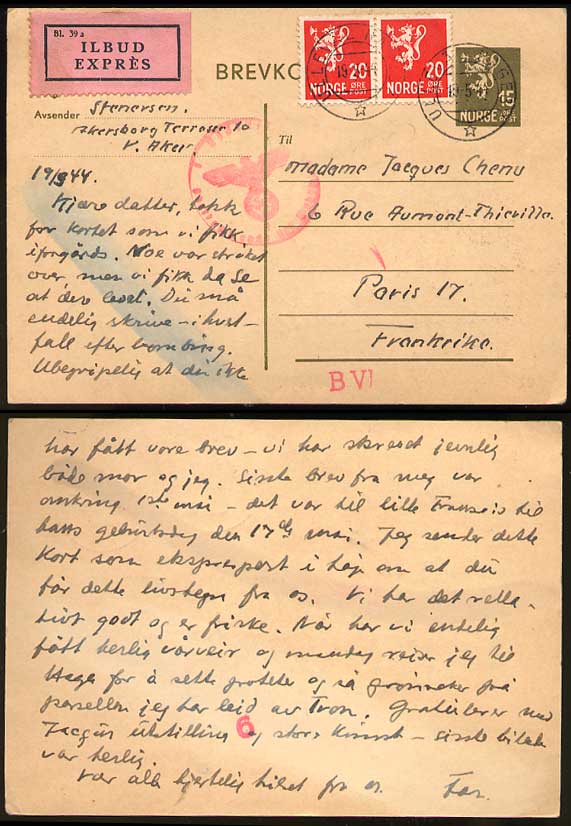 Bl. 39 a
ILBUD
EXPRÈS
BREVKO
20 20
NORGE ØRE POST NORGE ØRE POST
15
NORGE ØRE
Avsender Stenersen.
Akersborg Terrasse 10
V. Aker.
Til
Madame Jacques Chenu
6 Rue Aumont-Thieville.
Paris 17.
Frankrike.
B VI
19/5 44.
Kjære datter, takk
for kortet som vi fikk
iforgårds. Noe var strøket
over, men vi fikk da se
at dere levet. Du må
endelig skrive – ihvert-
fall efter bombing.
Ubegripelig at du ikke
har fått vore brev – vi har skrevet jevnlig
både mor og jeg. Siste brev fra meg var
omkring 1ste mai – det var til lille Francois til
hans geburtsdag den 17de mai. Jeg sender dette
kort som ekspresspost i håp om at du
får dette livstegn fra os. Vi har det rela-
tivt godt og er friske. Nå har vi endelig
fått herlig vårveir og mandag reiser jeg til
Haga for å sette poteter og så grønnsaker på
parsellen jeg har leid av Tron. Gratulerer med
Jacques utstilling og store kunst – siste billede
var herlig.
6
Vær alle hjertelig hilset fra os. Far.